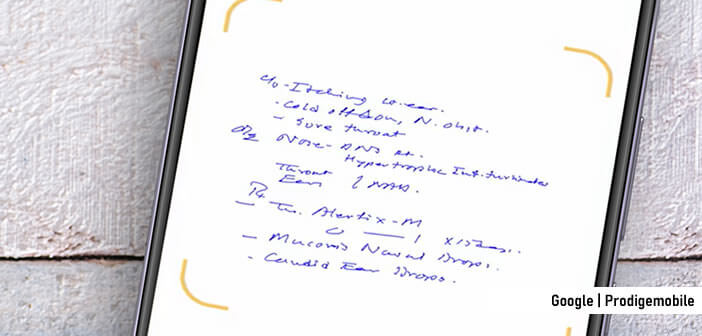 c/o - Itching in ear.
- Cold off & on, N. obst.
- Sore throat
O/E Nose - DNS Rt.
Hypertrophic Inf. turbinates
Throat
Ear } NAD.
Rx
- Tab. Alertix-M
x 15 days.
- Mucomis Nasal Drops.
- Candid Ear Drops.
Google | Prodigemobile